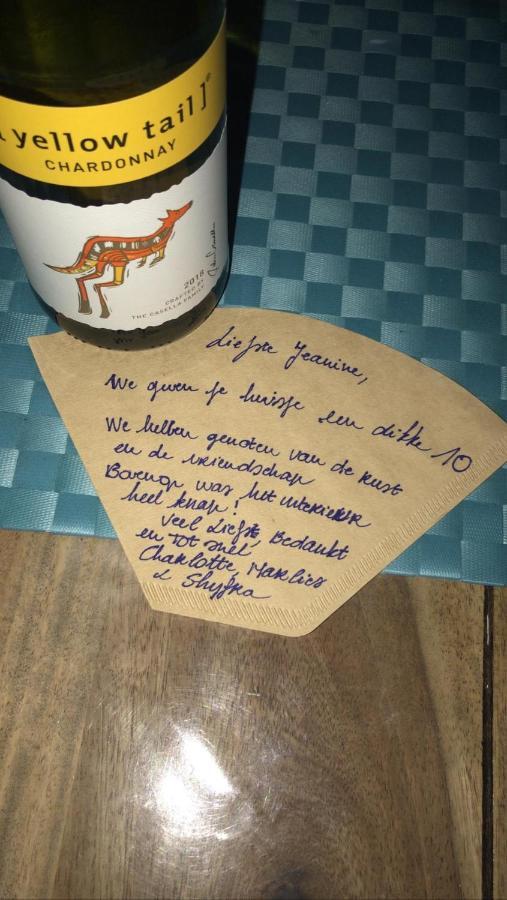 [yellow tail]®
CHARDONNAY
2018
CRAFTED BY
THE CASELLA FAMILY
Liefste Jeanine,
We gwen je huisje een dikke 10
We hebben genoten van de rust
en de vriendschap
Bovenop was het interieur
heel knap!
Veel Liefs, Bedankt
en tot snel
Charlotte, Marlies
&